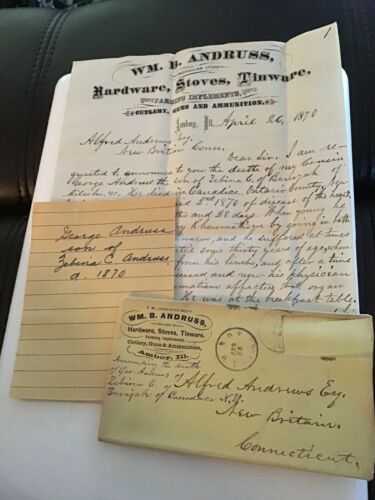 1
WM. B. ANDRUSS,
Hardware, Stoves, Tinware,
FARMING IMPLEMENTS,
CUTLERY, GUNS AND AMMUNITION,
Amboy, Ill., April 26, 1870
Alfred Andrews Esq.
New Britain Conn.
Dear Sir. I am re-
quested to announce to you the death of my Cousin
George Andruss the son of Zebina C. of
He died in Canadice, Ontario County, New
2nd 1870 of disease of the heart,
and 28 days. When young he
Rheumatism by going in bath
warm, and he suffered at times
some thirty years of
from his limbs, and after a time
and now his physician
affecting that organ
He was at the breakfast table.
George Andruss
son of
Zebina C. Andruss,
d. 1870
WM. B. ANDRUSS,
Hardware, Stoves, Tinware,
Farming Implements,
Cutlery, Guns & Ammunition,
Amboy, Ill.
Announcing the death
of Geo. Andruss of
Zebina C. of
of Canadice N.Y.
Alfred Andrews Esq.
New Britain.
Connecticut.